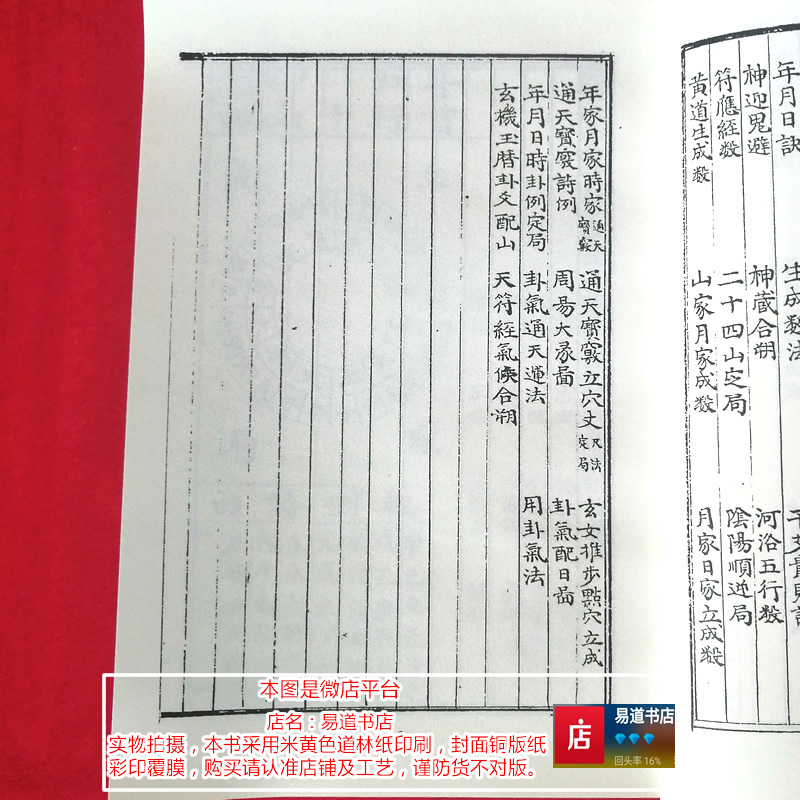 年月日訣 生成数法
神迎鬼避 神藏合朔 河洛五行数
符應經数 二十四山定局 陰陽順逆局
黃道生成数 山家月家成数 月家日家立成数
年家月家時家通天寳竅 通天寳竅立穴丈尺法定局 玄女推步點穴立成
通天寳竅詩例 周易大彖啚 卦氣配日啚
年月日時卦例定局 卦氣通天遁法 用卦氣法
玄機玉暦卦爻配山 天符經氣候合朔
本图是微店平台
店名：易道书店
实物拍摄，本书采用米黄色道林纸印刷，封面铜版纸
彩印覆膜，购买请认准店铺及工艺，谨防货不对版。
店
易道书店
回头率 16%